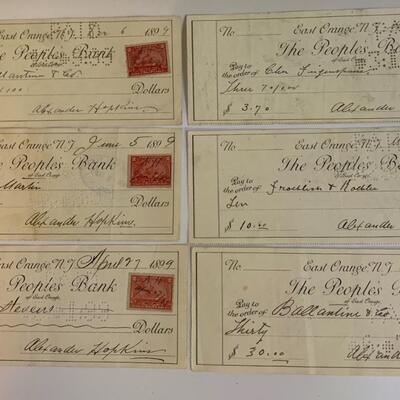 East Orange N.J. 6 1899
The Peoples Bank
of East Orange.
Ballantine & Co
/100
Dollars
Alexander Hopkins
East Orange N.J. June 5 1899
Peoples Bank
of East Orange.
Martin
Dollars
Alexander Hopkins.
East Orange N.J. April 27 1899
Peoples Bank
of East Orange.
Stevens
Dollars
Alexander Hopkins
No. East Orange N.J.
The Peoples Bank
of East Orange.
Pay to
the order of Chas
Three 70/100
$ 3.70 Alexander
No. East Orange N.J.
The Peoples Bank
of East Orange.
Pay to
the order of
Ten
$ 10.00 Alexander
No. East Orange N.J.
The Peoples
of East Orange.
Pay to
the order of Ballantine & Co
Thirty
$ 30.00 Alexander